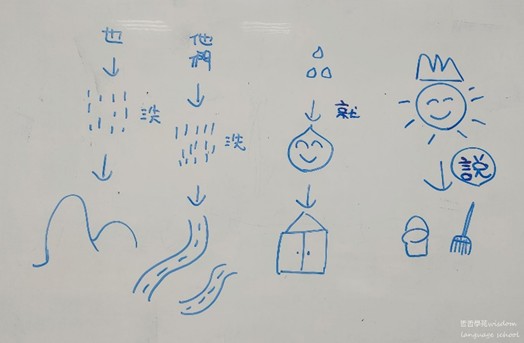 也
洗
他們
洗
就
說
思思學苑wisdom
language school